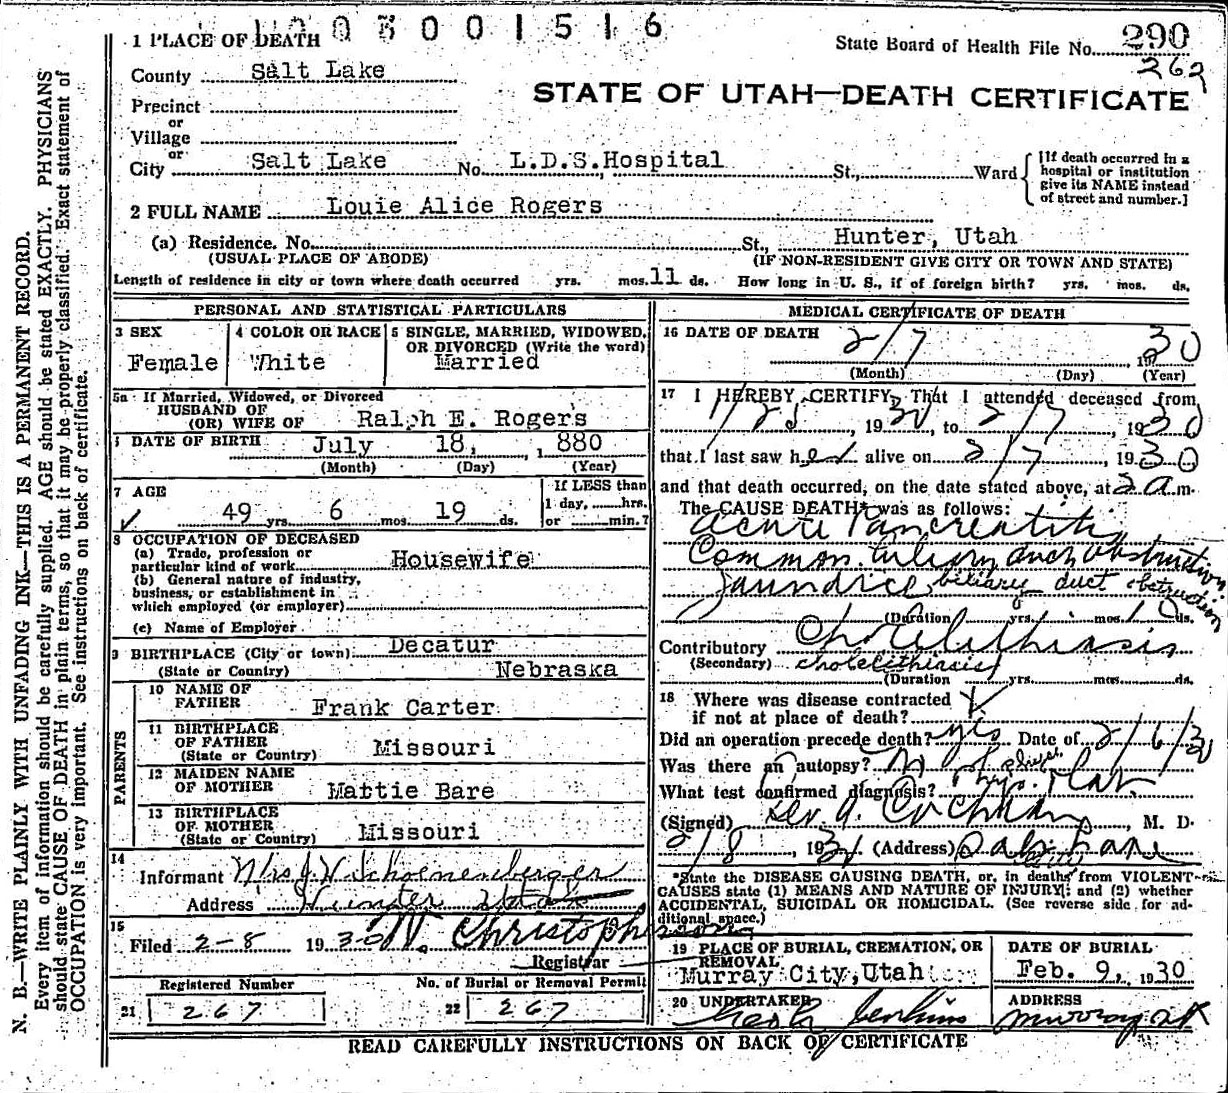 3 0 0 1 5 1 6
1 PLACE OF DEATH
State Board of Health File No. 290
262
County Salt Lake
STATE OF UTAH—DEATH CERTIFICATE
Precinct
or
Village
or
City Salt Lake No. L.D.S. Hospital St., Ward
[If death occurred in a hospital or institution give its NAME instead of street and number.]
2 FULL NAME Louie Alice Rogers
(a) Residence. No. St., Hunter, Utah
(USUAL PLACE OF ABODE) (IF NON-RESIDENT GIVE CITY OR TOWN AND STATE)
Length of residence in city or town where death occurred yrs. mos. 11 ds. How long in U. S., if of foreign birth? yrs. mos. ds.
PERSONAL AND STATISTICAL PARTICULARS
3 SEX
Female
4 COLOR OR RACE
White
5 SINGLE, MARRIED, WIDOWED,
OR DIVORCED (Write the word)
Married
5a If Married, Widowed, or Divorced
HUSBAND OF
(OR) WIFE OF Ralph E. Rogers
DATE OF BIRTH July 18, 1 880
(Month) (Day) (Year)
7 AGE
49 yrs. 6 mos. 19 ds.
If LESS than
1 day, hrs.
or min.?
8 OCCUPATION OF DECEASED
(a) Trade, profession or
particular kind of work Housewife
(b) General nature of industry,
business, or establishment in
which employed (or employer)
(c) Name of Employer
9 BIRTHPLACE (City or town) Decatur
(State or Country) Nebraska
PARENTS
10 NAME OF
FATHER Frank Carter
11 BIRTHPLACE
OF FATHER
(State or Country) Missouri
12 MAIDEN NAME
OF MOTHER Mattie Bare
13 BIRTHPLACE
OF MOTHER
(State or Country) Missouri
14
Informant Mrs J W Schoenenberger
Address Hunter Utah
15
Filed 2-8 1930 Christopherson
Registrar
Registered Number
21 267
No. of Burial or Removal Permit
22 267
MEDICAL CERTIFICATE OF DEATH
16 DATE OF DEATH 2/7 1930
(Month) (Day) (Year)
17 I HEREBY CERTIFY, That I attended deceased from
, 1930, to 2/7, 1930
that I last saw her alive on 2/7, 1930
and that death occurred, on the date stated above, at 2 a m.
The CAUSE DEATH* was as follows:
Acute Pancreatitis
Common biliary duct obstruction
Jaundice biliary duct obstruction
(Duration) yrs. mos. 10 ds.
Contributory Cholelithiasis
(Secondary) cholelithiasis
(Duration yrs. mos. ds.
18 Where was disease contracted
if not at place of death?
Did an operation precede death? yes Date of 2/6/30
Was there an autopsy? No
What test confirmed diagnosis?
(Signed) , M. D.
2/8, 1930 (Address)
*State the DISEASE CAUSING DEATH, or, in deaths from VIOLENT
CAUSES state (1) MEANS AND NATURE OF INJURY; and (2) whether
ACCIDENTAL, SUICIDAL OR HOMICIDAL. (See reverse side for ad-
ditional space.)
19 PLACE OF BURIAL, CREMATION, OR
REMOVAL
Murray City, Utah
DATE OF BURIAL
Feb. 9, 1930
20 UNDERTAKER
Jenkins
ADDRESS
Murray Ut
READ CAREFULLY INSTRUCTIONS ON BACK OF CERTIFICATE
N. B.—WRITE PLAINLY WITH UNFADING INK—THIS IS A PERMANENT RECORD.
Every item of information should be carefully supplied. AGE should be stated EXACTLY. PHYSICIANS
should state CAUSE OF DEATH in plain terms, so that it may be properly classified. Exact statement of
OCCUPATION is very important. See instructions on back of certificate.